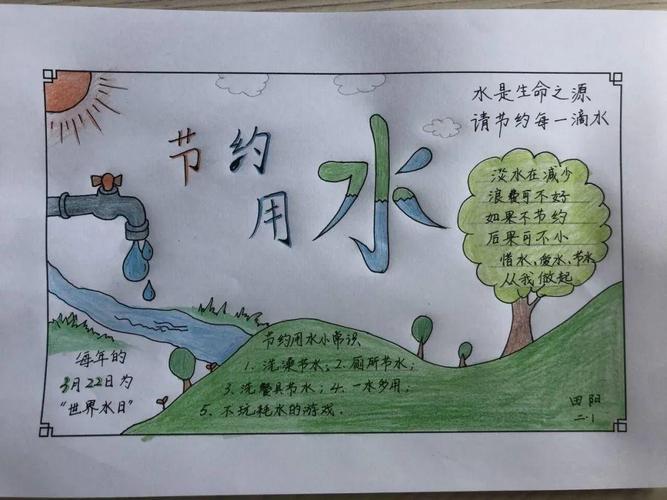 节约
用水
水是生命之源
请节约每一滴水
淡水在减少
浪费可不好
如果不节约
后果可不小
惜水、爱水、节水
从我做起
节约用水小常识
1. 洗澡节水；2. 厕所节水；
3. 洗餐具节水；4. 一水多用；
5. 不玩耗水的游戏.
每年的
3月22日为
“世界水日”
田阳
二.1